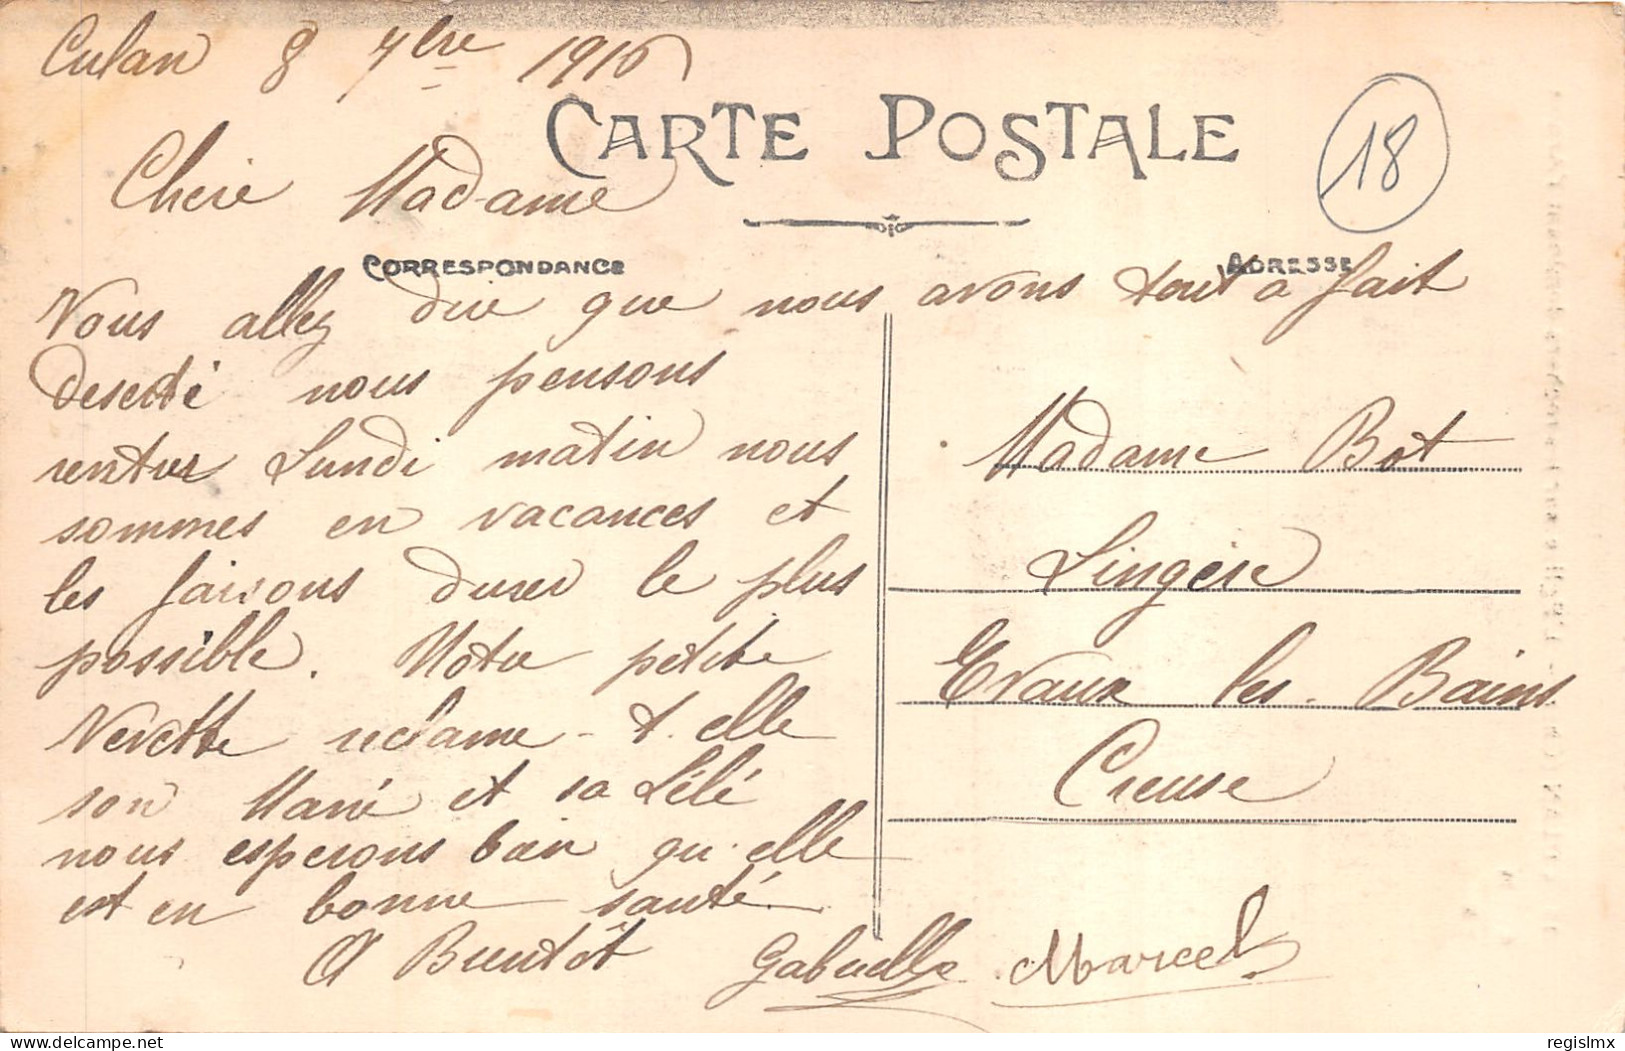 Culan 8 7bre 1916
CARTE POSTALE
18
Chere Madame
CORRESPONDANCE
ADRESSE
Vous allez dire que nous avons tout a fait
deserté nous pensons
rentrer Lundi matin nous
sommes en vacances et
les faisons durer le plus
possible. Notre petite
Verette reclame-t-elle
son Mané et sa Lélé
nous esperons bien qu'elle
est en bonne santé.
A Bientôt Gabrielle Marcel
Madame Bot
Lingère
Evaux les Bains
Creuse
Delcampe.net
regislmx